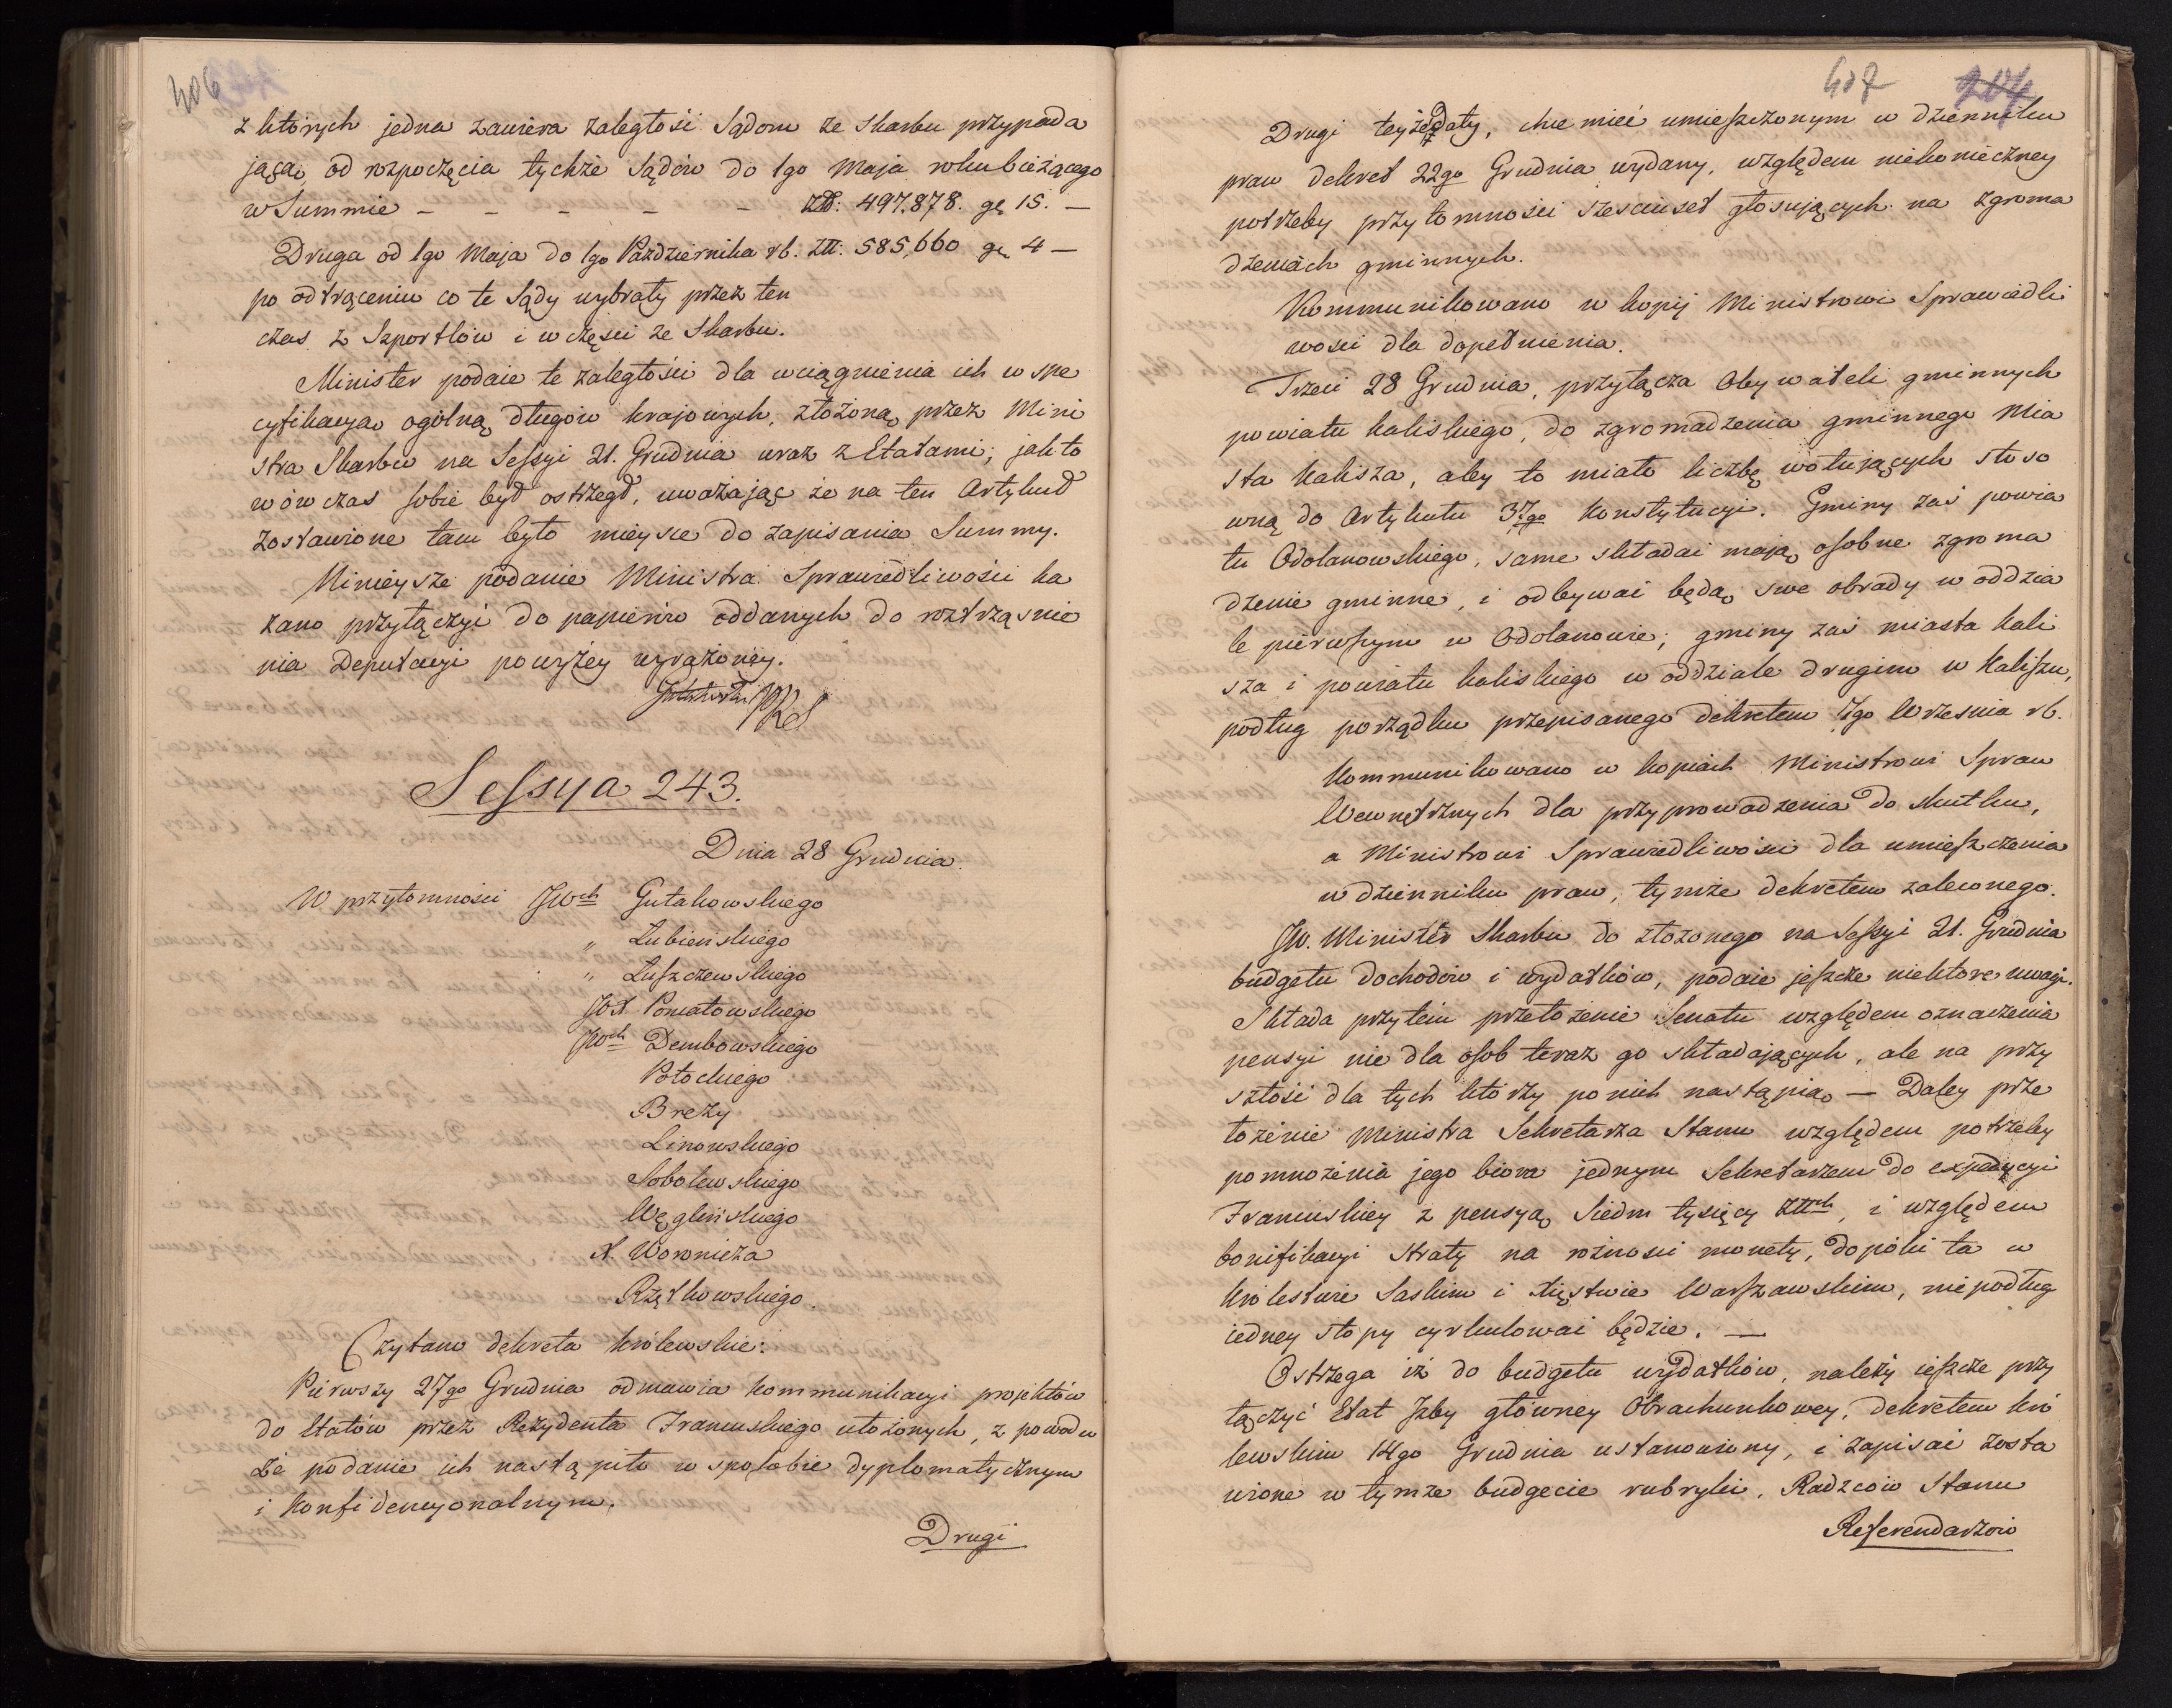 406
z których jedna zawiera zaległości Sądom ze Skarbu przypada
jącą, od rozpoczęcia tychże Sądów do 1go Maja roku bieżącego
w Summie – – – – – Złł: 497.878. gr 15. –
Druga od 1go Maja do 1go Października rb. Złł: 585,660 gr 4 –
po odtrąceniu co te Sądy wybrały przez ten
czas z Szportlów i w części ze Skarbu.
Minister podaie te zaległości dla wciągnienia ich w spe
cyfikacyą ogólną długów krajowych, złożoną przez Mini
stra Skarbu na Sessyi 21. Grudnia wraz z Etatami; jak to
wówczas sobie był ostrzegł, uważając że na ten Artykuł
zostawione tam było mieysce do zapisania Summy.
Ninieysze podanie Ministra Sprawiedliwości ka
zano przyłączyć do papierów oddanych do roztrząśnie
nia Deputacyi powyżey wyrażoney.
Gutakowski PRS
Sessya 243.
Dnia 28 Grudnia.
W przytomności JWch Gutakowskiego
„ Łubieńskiego
„ Łuszczewskiego
JOX. Poniatowskiego
JWch Dembowskiego
Potockiego
Brezy
Linowskiego
Sobolewskiego
Węglińskiego
X. Woronicza
Rzętkowskiego.
Czytano dekreta królewskie:
Pierwszy 27go Grudnia odmawia kommunikacyi projektów
do Etatów przez Rezydenta Francuskiego ułożonych, z powodu
że podanie ich nastąpiło w sposobie dyplomatycznym
i konfidencyonalnym.
Drugi
407 204
Drugi teyże daty, chce mieć umieszczonym w dzienniku
praw dekret 22go Grudnia wydany, względem niekonieczney
potrzeby przytomności sześciuset głosujących na zgroma
dzeniach gminnych.
Kommunikowano w kopij Ministrowi Sprawiedli
wości dla dopełnienia.
Trzeci 28 Grudnia, przyłącza Obywateli gminnych
powiatu kaliskiego, do zgromadzenia gminnego Mia
sta Kalisza, aby to miało liczbę wotujących stoso
wną do Artykułu 37go Konstytucyi. Gminy zaś powia
tu Odolanowskiego, same składać mają osobne zgroma
dzenie gminne, i odbywać będą swe obrady w oddzia
le pierwszym w Odolanowie; gminy zaś miasta Kali
sza i powiatu kaliskiego w oddziale drugim w Kaliszu,
podług porządku przepisanego dekretem 7go Września rb.
Kommunikowano w kopiach Ministrowi Spraw
Wewnętrznych dla przyprowadzenia do skutku,
a Ministrowi Sprawiedliwości dla umieszczenia
w dzienniku praw, tymże dekretem zaleconego.
JW. Minister Skarbu do złożonego na Sessyi 21. Grudnia
budgetu dochodów i wydatków, podaie jeszcze niektore uwagi.
Składa przytem przełożenie Senatu względem oznaczenia
pensyi nie dla osob teraz go składających, ale na przy
szłość dla tych którzy po nich nastąpią – Daley prze
łożenie Ministra Sekretarza Stanu względem potrzeby
pomnożenia jego biora jednym Sekretarzem do expedycyi
Francuskiey z pensyą Siedm tysięcy Złłch, i względem
bonifikacyi straty na różności monety, dopóki ta w
Królestwie Saskim i Xięstwie Warszawskim, nie podług
iedney stopy cyrkulować będzie. –
Ostrzega iż do budgetu wydatków, należy ieszcze przy
łączyć Etat Izby główney Obrachunkowey, dekretem kró
lewskim 14go Grudnia ustanowiony, i zapisać zosta
wione w tymże budgecie rubryki, Radzców Stanu
Referendarzów